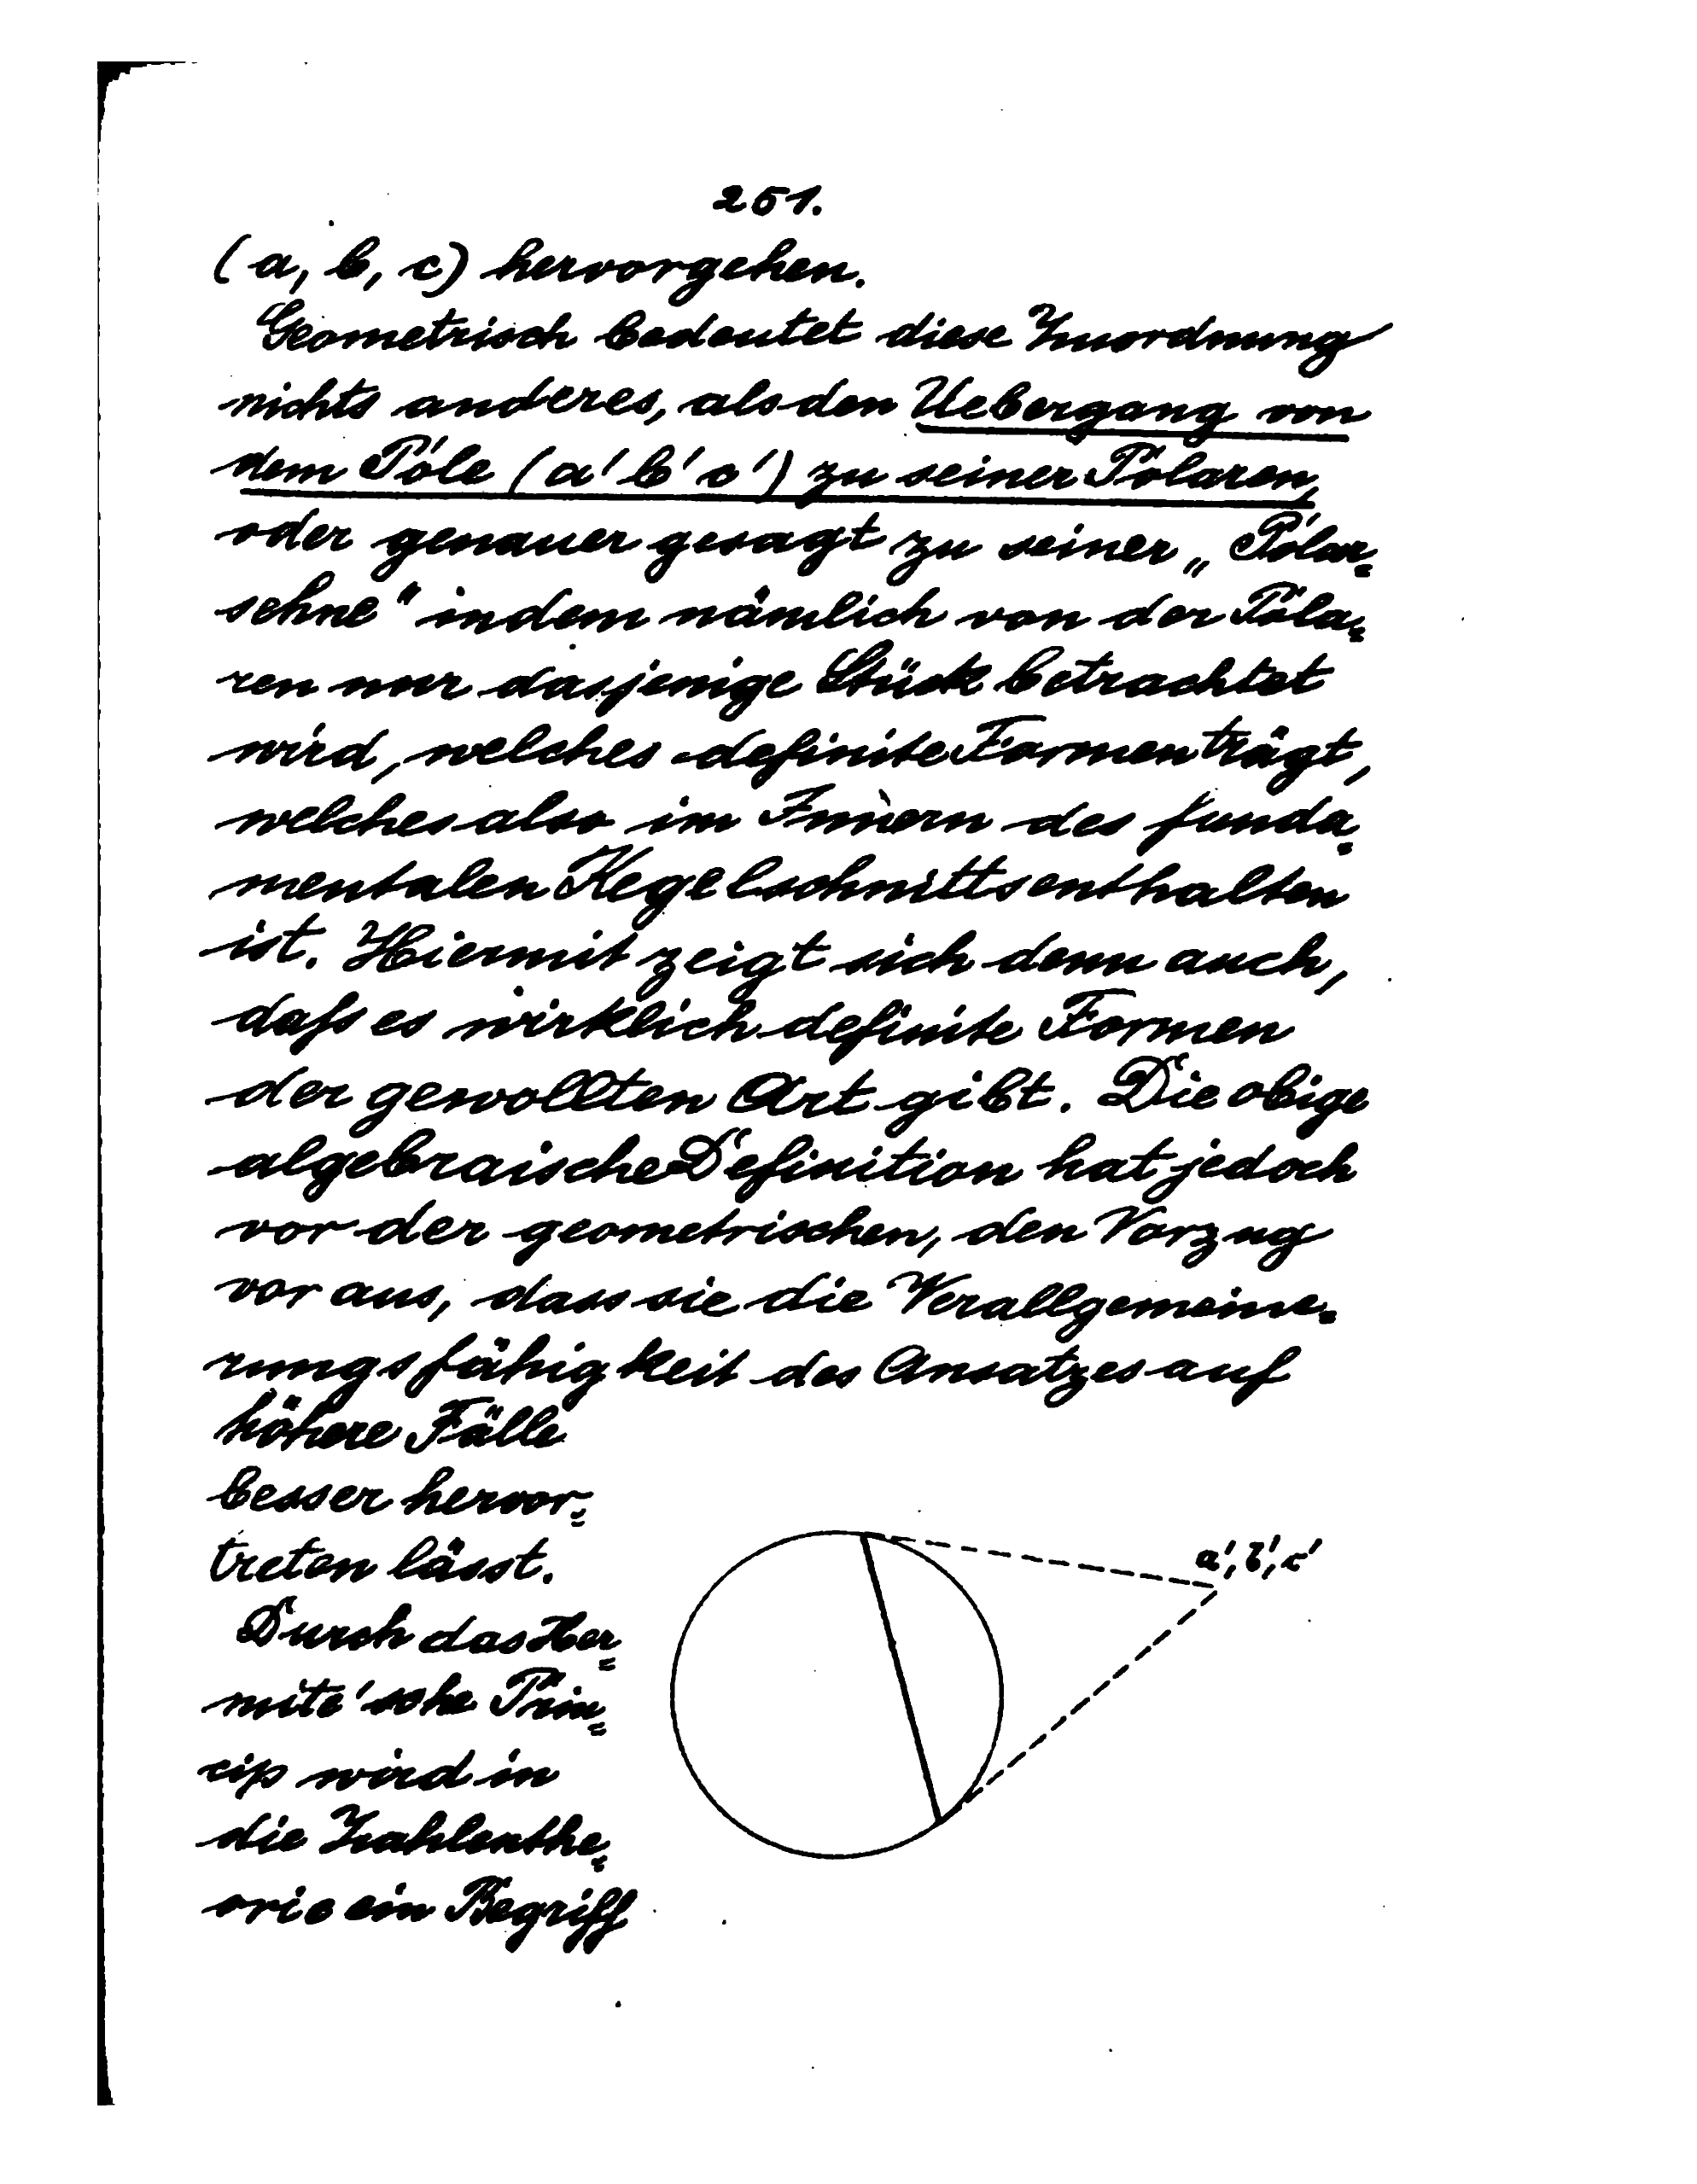 251.
(a, b, c) hervorgehen.
Geometrisch bedeutet diese Zuordnung
nichts anderes, als den Uebergang von
dem Pole (a' b' c') zu seiner Polaren,
oder genauer gesagt zu seiner „Polar=
sehne" indem nämlich von der Pola=
ren nur dasjenige Stück betrachtet
wird, welches definite Formen trägt,
welches also im Innern des funda=
mentalen Kegelschnitts enthalten
ist. Hiermit zeigt sich denn auch,
daſs es wirklich definite Formen
der gewollten Art gibt. Die obige
algebraische Definition hat jedoch
vor der geometrischen, den Vorzug
voraus, dass sie die Verallgemeine=
rungsfähigkeit des Ansatzes auf
höhere Fälle
besser hervor=
treten lässt.
a', b', c'
Durch das Her=
mite'sche Prin=
cip wird in
die Zahlenthe=
orie ein Begriff